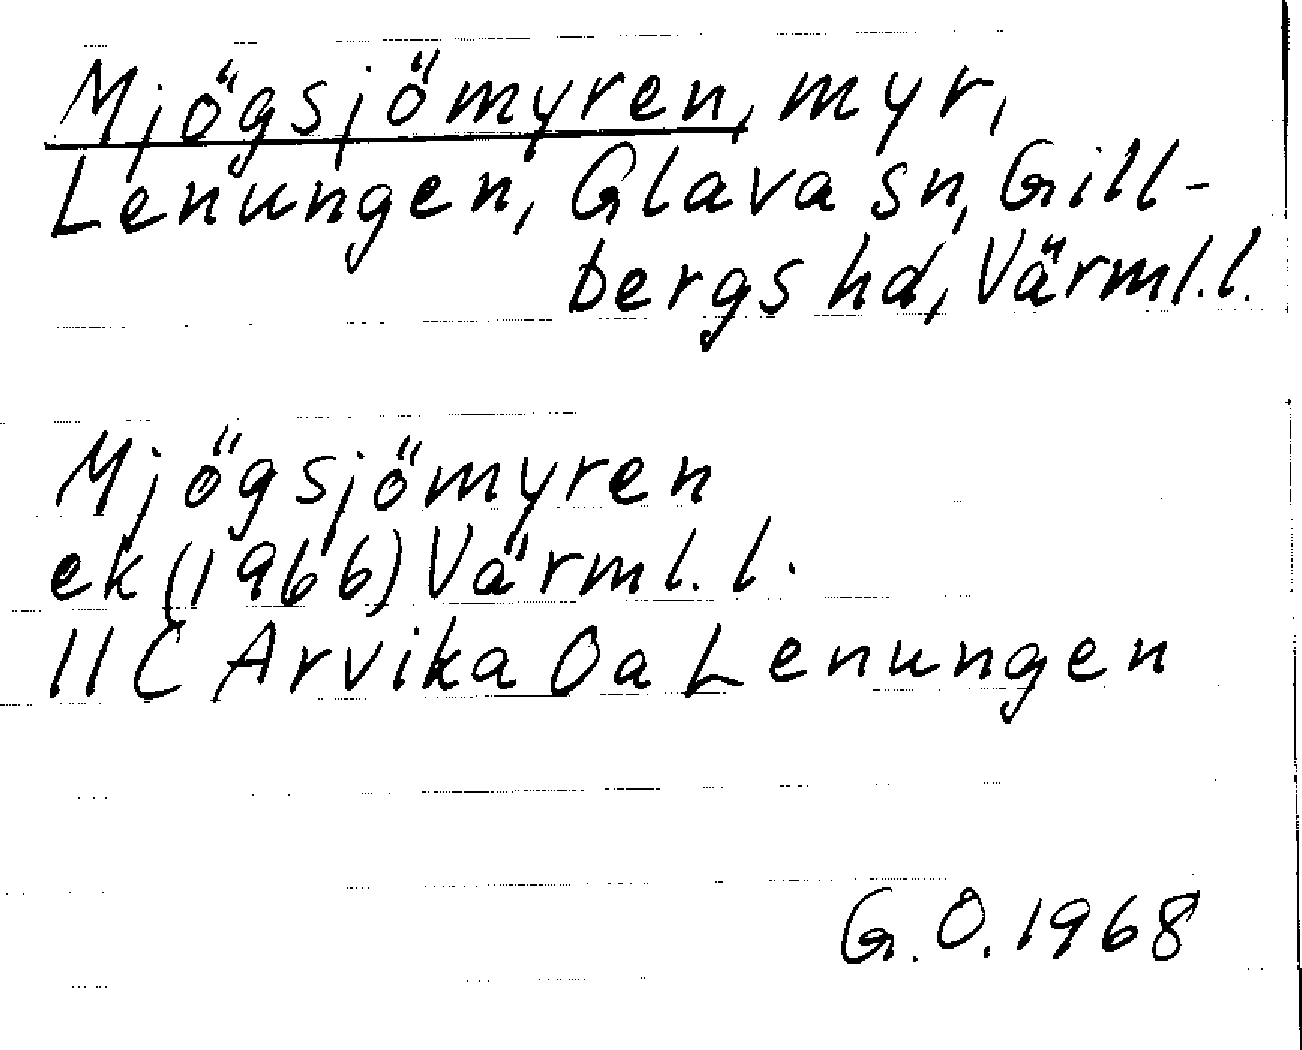 Mjögsjömyren, myr,
Lenungen, Glava sn, Gill-
bergs hd, Värml.l.
Mjögsjömyren
ek (1966) Värml.l.
11C Arvika 0a Lenungen
G.O. 1968